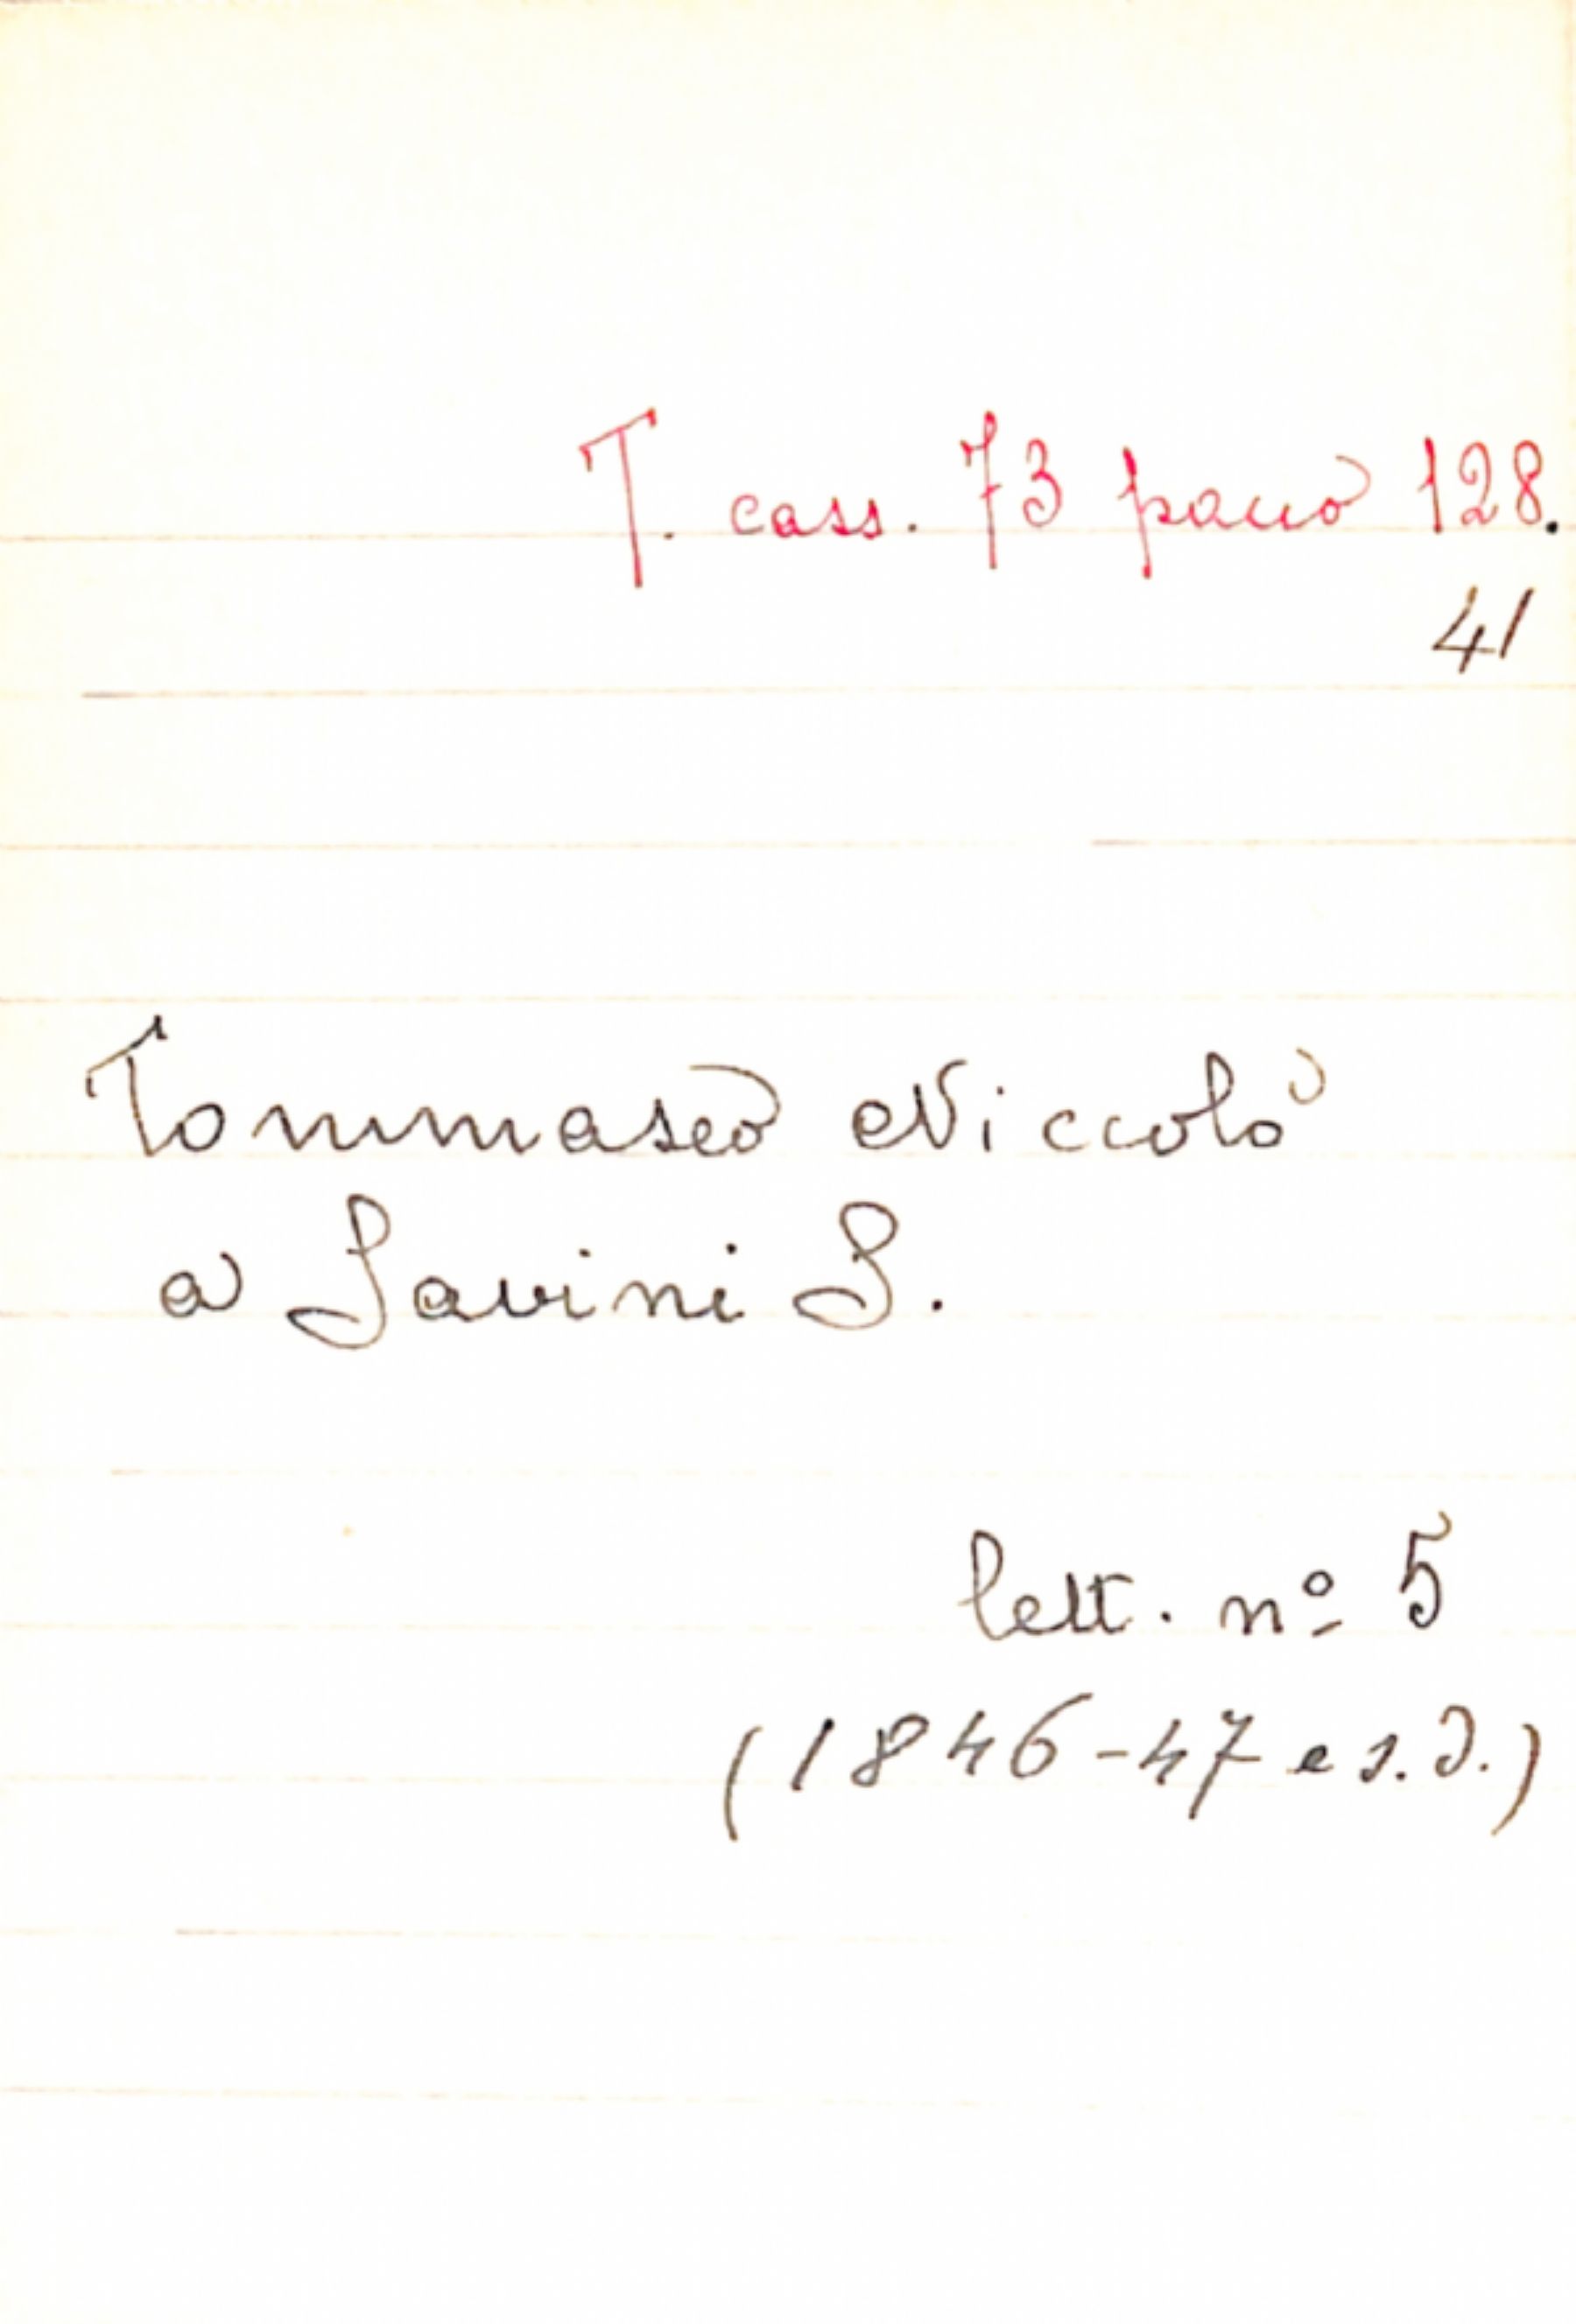 T. cass. 73 pacco 128.
41
Tommaseo Niccolò
a Savini S.
lett. nº 5
(1846-47 e s.d.)